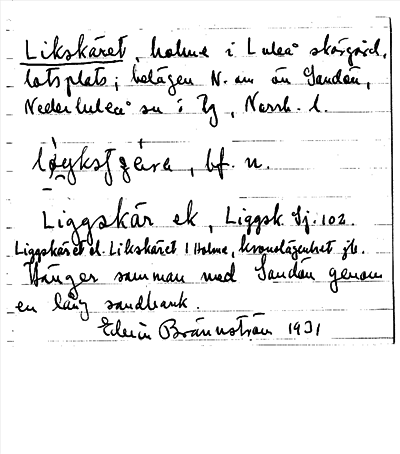 Likskäret, holme i Luleå skärgård,
lotsplats; belägen N. om ön Sandön,
Nederluleå sn i Ty, Norrb. l.
bf. n.
Liggskär ek, Liggsk. Gj. 102.
Liggskäret el. Likskäret 1 Holme, kronolägenhet jb.
Hänger samman med Sandön genom
en lång sandbank.
Edvin Brännström 1931